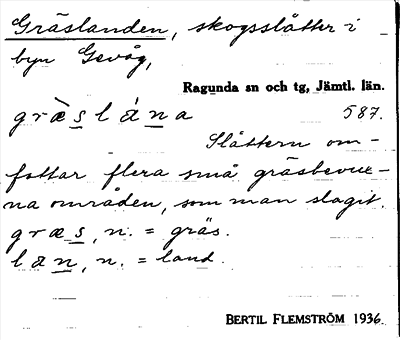 Gräslanden, skogsslåtter i
byn Gevåg,
Ragunda sn och tg, Jämtl. län.
græ̀slána 587.
Slåttern om-
fattar flera små gräsbevux-
na områden, som man slagit.
græs, n. = gräs.
lan, n. = land.
BERTIL FLEMSTRÖM 1936